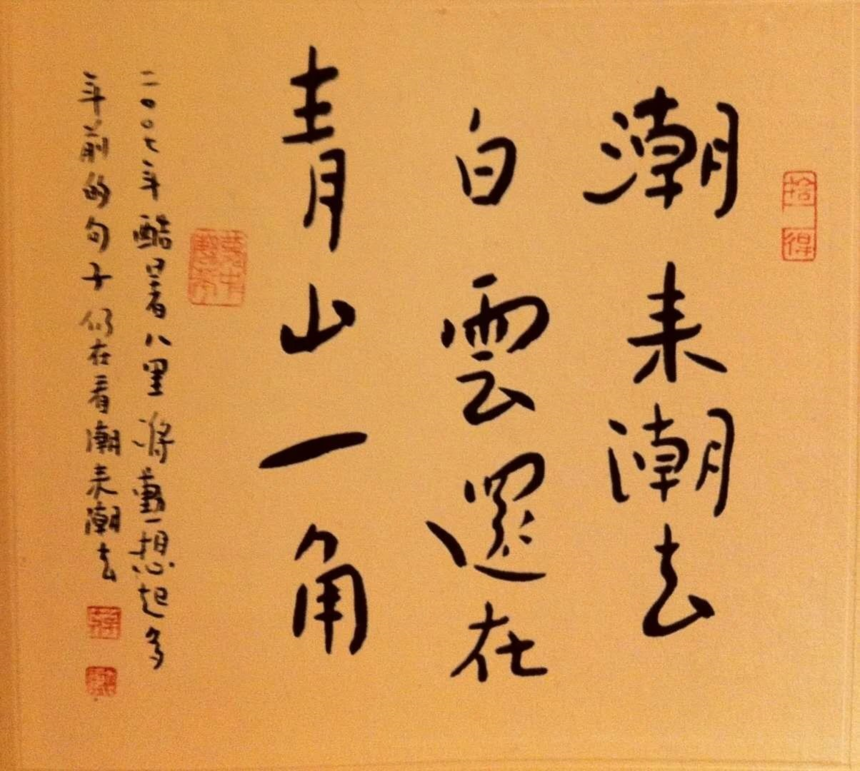 潮来潮去
白雲還在
青山一角
二〇〇七年酷暑八里蔣勳想起多
年前的句子仍在看潮来潮去
拾得